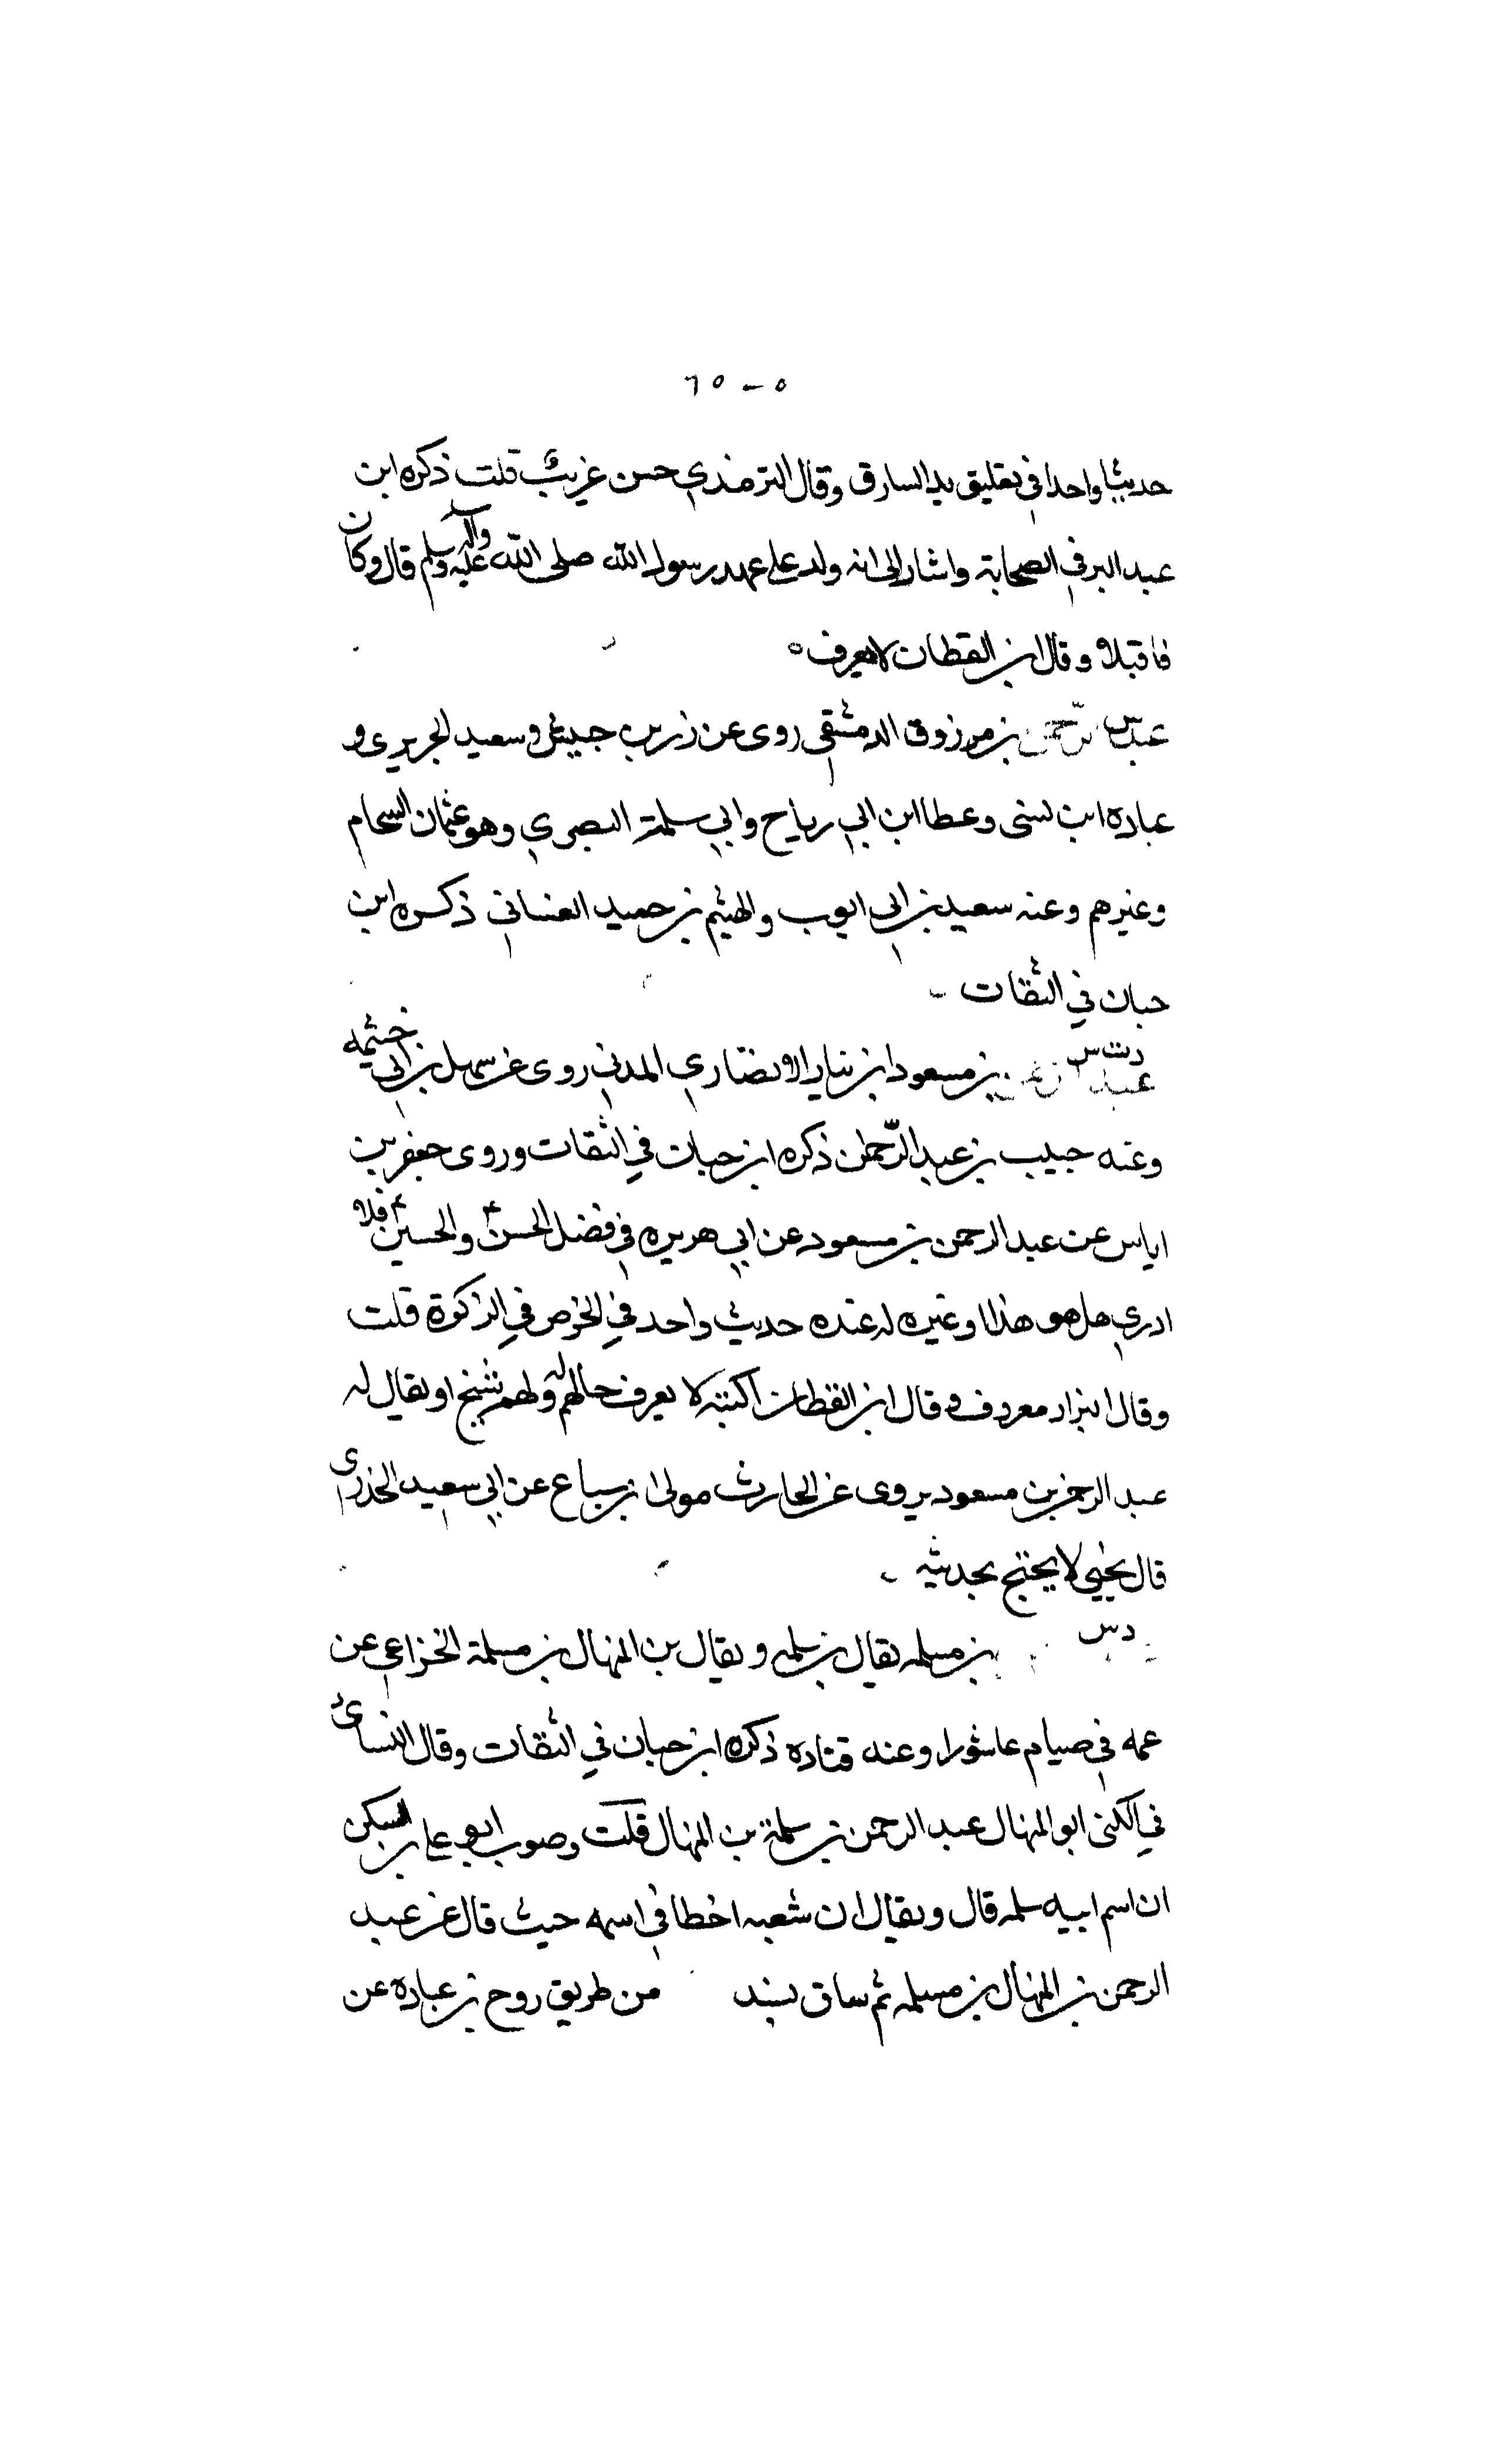 ٥ - ٦٥
حديثا واحدا في تعليق يد السارق وقال الترمذي حسن غريب قلت ذكره ابن
عبد البر في الصحابة واشار الى انه ولد على عهد رسول الله صلى الله عليه وآله وسلم قال وكان
فاقبلا وقال ابن القطان لا يعرف ٥
عبد الرحمن بن مرزوق الدمشقي روى عن زر بن حبيش وسعيد الجريري و
عباده ابن نسى وعطا ابن ابي رباح وابي سلمة البصري وهو عثمان الشحام
وغيرهم وعنه سعيد بن ابي ايوب والهيثم بن حميد الغساني ذكره ابن
حبان في الثقات -
د ت س
عبد الرحمن بن مسعود ابن نيار الانصاري المدني روى عن سهل بن ابي خثمه
وعنه حبيب بن عبد الرحمن ذكره ابن حبان في الثقات وروى جعفر بن
اياس عن عبد الرحمن بن مسعود عن ابي هريره في فضل الحسن والحسين فلا
ادري هل هو هذا او غيره له عنده حديث واحد في الخرص في الزكوة قلت
وقال البزار معروف وقال ابن القطان لا يعرف حاله ولهم شيخ او يقال له
عبد الرحمن بن مسعود يروى عن الحارث مولى ابن سباع عن ابي سعيد الخدرى
قال يحيى لا يحتج بحديثه -
د س
بن مسلمه يقال بن سلمه ويقال بن المنهال بن مسلمة الخزاعي عن
عمه في صيام عاشورا وعنه قتاده ذكره ابن حبان في الثقات وقال النسائ
في الكنى ابو المنهال عبد الرحمن بن سلمة بن المنهال قلت وصوب ابو علي بن السكن
ان اسم ابيه سلمه قال ويقال ان شعبه اخطا في اسمه حيث قال عن عبد
الرحمن بن المنهال بن مسلمه ثم ساق بسند من طريق روح بن عباده عن